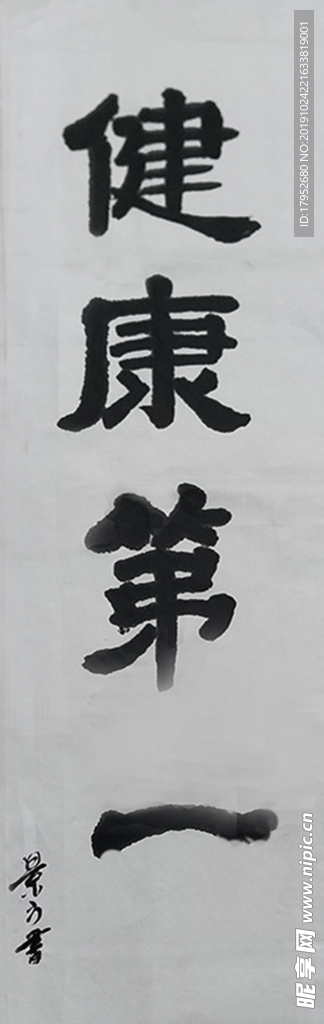 健康第一
景方書
ID:17952680 NO:20191024221633819001
昵享网 www.nipic.cn